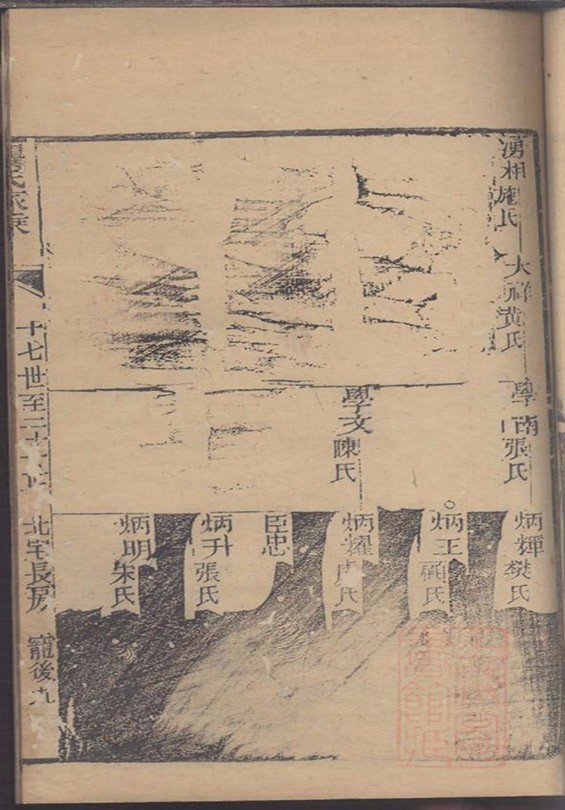 湧相施氏
大祥黃氏
學南張氏
學文陳氏
炳輝樊氏
炳玉顧氏
炳耀氏
臣忠
炳升張氏
炳明朱氏
氏家乘
十七世至二十世
北宅長房
寵後九